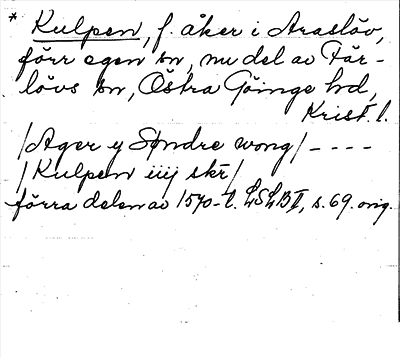 * Kulpen, f. åker i Araslöv,
förr egen sn, nu del av Fär-
lövs sn, Östra Göinge hd,
Krist. l.
/Ager y Søndre wong/ - - - -
/Kulpen iiij skr/
förra delen av 1570-t. LSLB II, s. 69. orig.